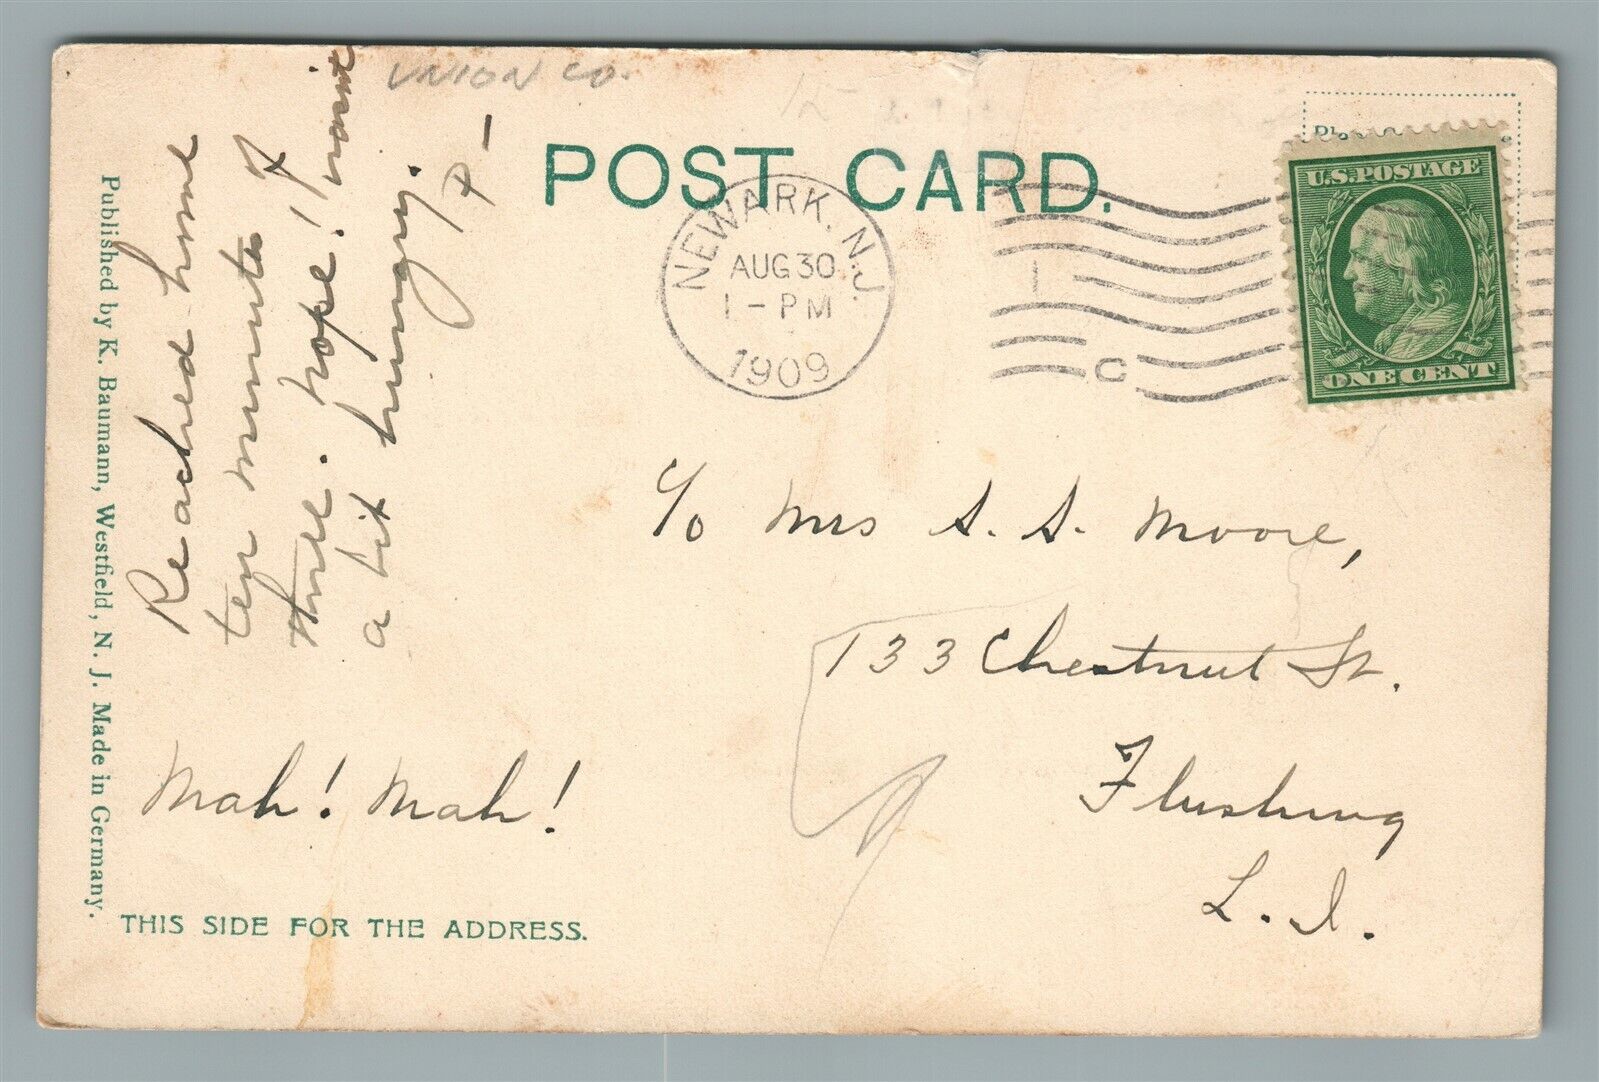 UNION CO.
POST CARD.
U.S. POSTAGE
ONE CENT
NEWARK, N.J.
AUG 30
1 - PM
1909
C
Reached home
ten minutes of
three. hope! I wasnt
a bit hungry.
P -
Mah! Mah!
c/o Mrs S. S. Moore,
133 Chestnut St.
Flushing
L. I.
Published by K. Baumann, Westfield, N. J. Made in Germany.
THIS SIDE FOR THE ADDRESS.